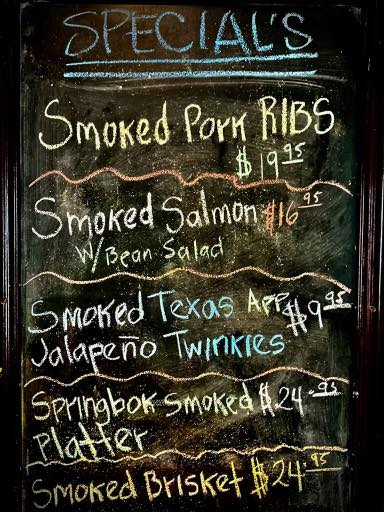 SPECIAL'S
Smoked Pork RIBS
$19.95
Smoked Salmon $16.95
W/Bean Salad
Smoked Texas App. $9.95
Jalapeño Twinkies
Springbok Smoked $24.95
Platter
Smoked Brisket $24.95